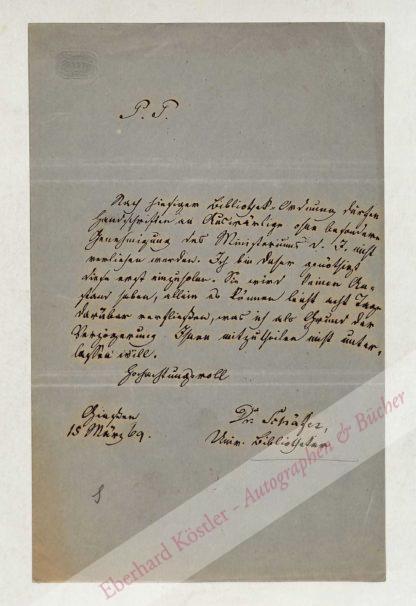 P. P.
Nach hiesiger Bibliothek-Ordnung dürfen
Handschriften an Auswärtige ohne besondere
Genehmigung des Ministeriums d. J. nicht
verliehen werden. Ich bin daher genöthigt
diese erst einzuholen. Sie wird keinen An-
stand haben, allein es können leicht acht Tage
darüber verfließen, was ich als Grund der
Verzögerung Ihnen mitzutheilen nicht unter-
lassen will.
Hochachtungsvoll
Giessen
15 März 69.
Dr. Schäfer,
Univ. Bibliothekar
Eberhard Köstler - Autographen & Bücher